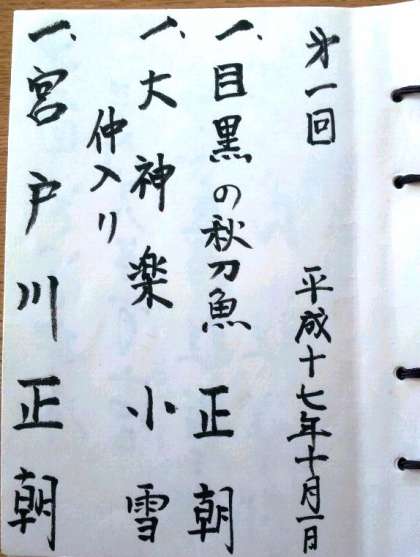 第一回 平成十七年十月一日
一、目黒の秋刀魚 正朝
一、大神楽 小雪
仲入り
一、宮戸川 正朝